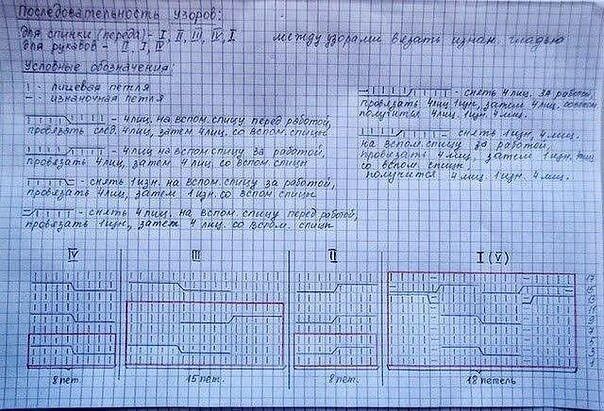 Последовательность узоров:
для спинки (переда) - I, II, III, IV, I
для рукавов - II, I, IV
между узорами вязать изнан. гладью
Условные обозначения:
| - лицевая петля
− - изнаночная петля
- 4 лиц. на вспом. спицу перед работой,
провязать след. 4 лиц, затем 4 лиц. со вспом. спицы
- 4 лиц на вспом спицу за работой,
провязать 4 лиц, затем 4 лиц. со вспом спиц
- снять 1 изн. на вспом. спицу за работой,
провязать 4 лиц, затем 1 изн. со вспом спиц
- снять 4 лиц. на вспом. спицу перед работой,
провязать 1 изн, затем 4 лиц. со вспом. спиц
- снять 4 лиц. за работой,
провязать 4 лиц 1 изн, затем 4 лиц. со вспом
получить 4 лиц. 1 изн. 4 лиц.
- снять 1 изн, 4 лиц.
на вспом. спицу за работой,
провязать 4 лиц, затем 1 изн.
со вспом. спиц
получится 4 лиц. 1 изн. 4 лиц.
IV III II I (V)
8 пет. 15 пет. 8 пет. 18 петель